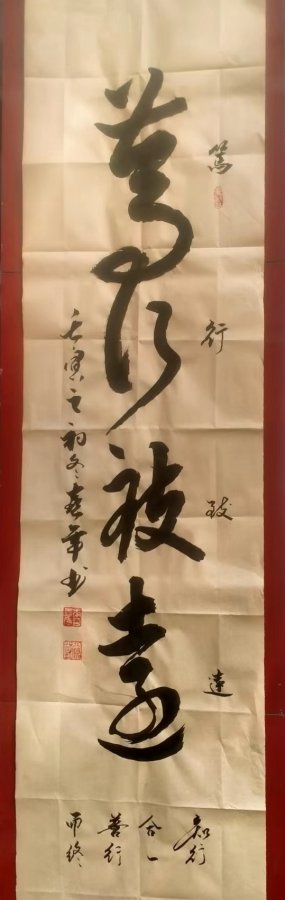 篤行致遠
篤
行
致
遠
壬寅之初冬春華书
知行
合一
善行
而终